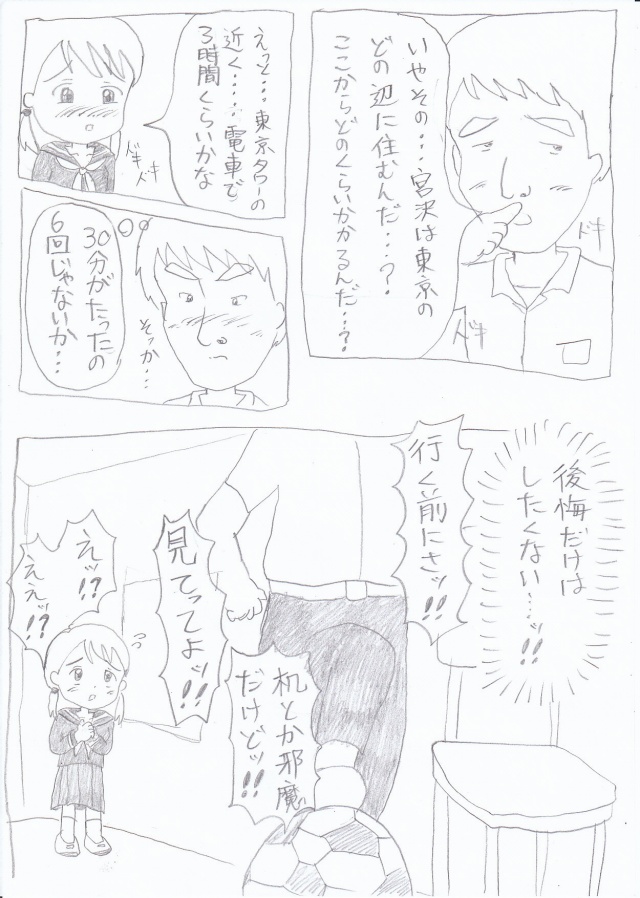 いやその…宮沢は東京の
どの辺に住むんだ…?
ここからどのくらいかかるんだ…?
ドキ
ドキ
えっと…東京タワーの
近く……電車で
3時間くらいかな
ドキ
ドキ
そっか…
30分がたったの
6回じゃないか…
後悔だけは
したくない…ッ!!
行く前にさッ!!
見てってよッ!!
机とか邪魔
だけどッ!!
えッ!?
ええッ!?